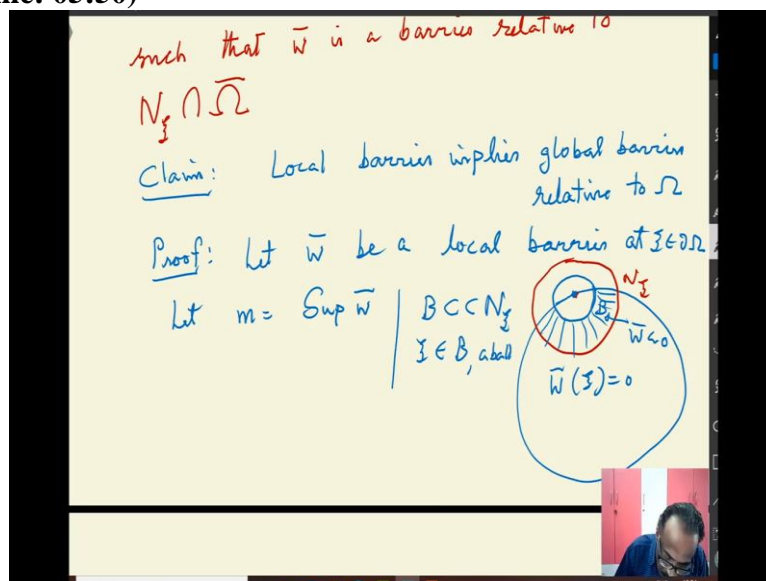 such that w̄ is a barrier relative to
N_ξ ∩ Ω̄
Claim: Local barrier implies global barrier
relative to Ω
Proof: Let w̄ be a local barrier at ξ∈∂Ω
Let m = Sup w̄ | B ⊂⊂ N_ξ
ξ ∈ B, a ball
N_ξ
w̄<0
w̄(ξ)=0